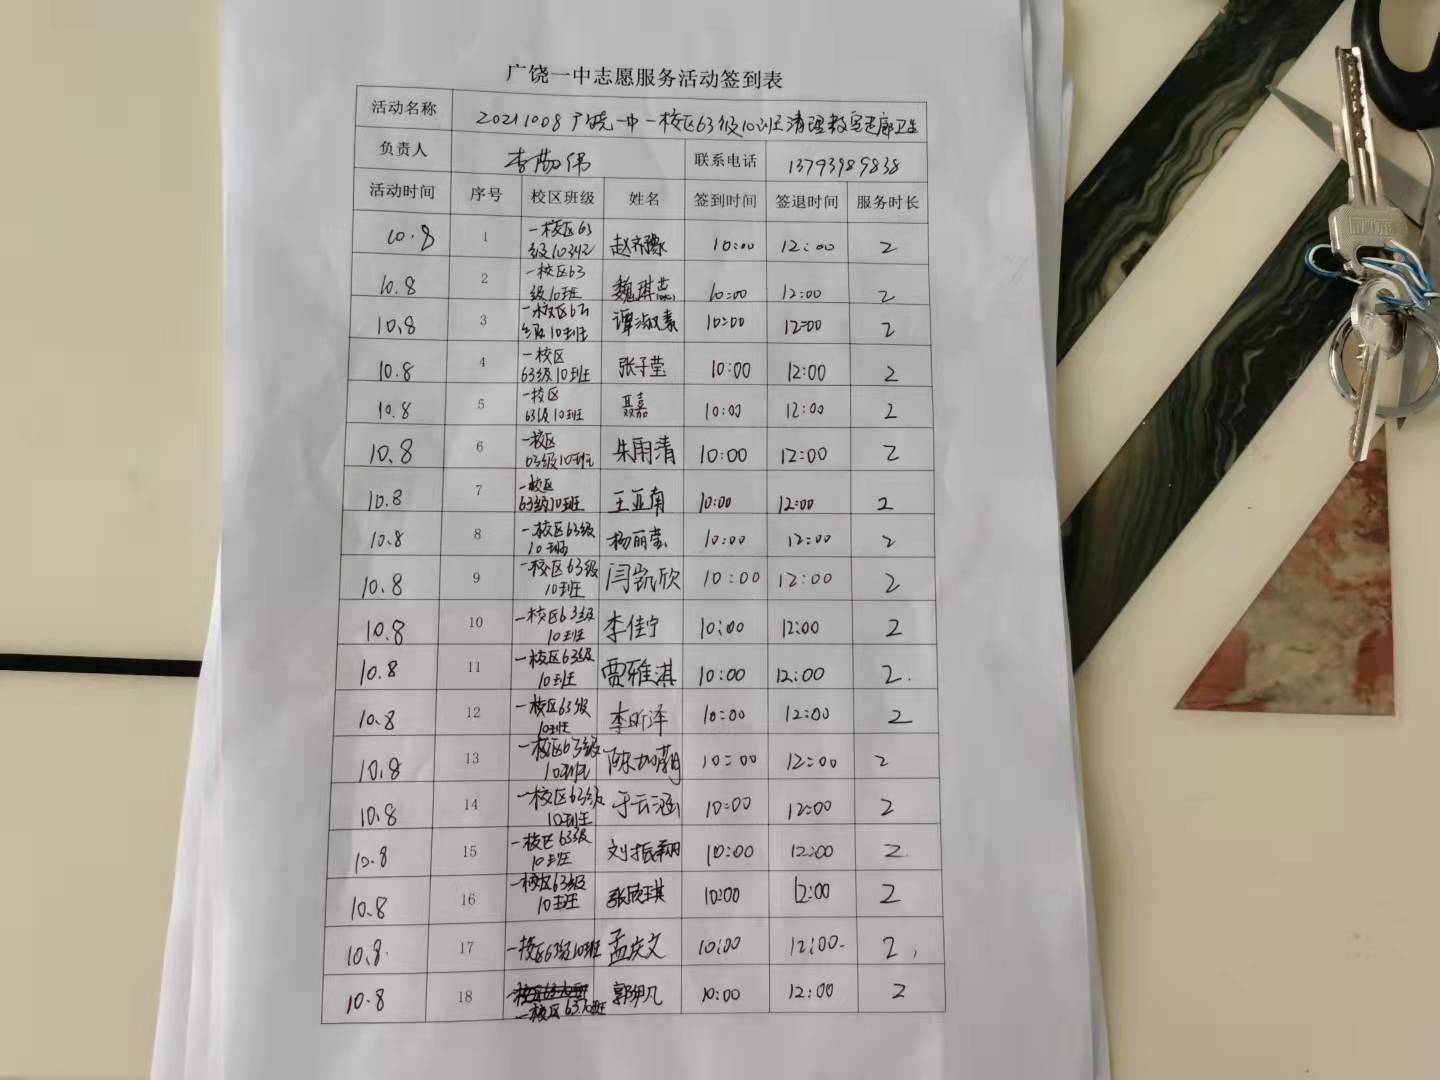 广饶一中志愿服务活动签到表
活动名称 20211008广饶一中一校区63级10班清理教室走廊卫生
负责人 李勋伟 联系电话 13793989838
活动时间 序号 校区班级 姓名 签到时间 签退时间 服务时长
10.8 1 一校区63级10班 赵齐豫 10:00 12:00 2
10.8 2 一校区63级10班 魏琪蕊 10:00 12:00 2
10.8 3 一校区63级10班 谭淑素 10:00 12:00 2
10.8 4 一校区63级10班 张子莹 10:00 12:00 2
10.8 5 一校区63级10班 聂嘉 10:00 12:00 2
10.8 6 一校区63级10班 朱雨清 10:00 12:00 2
10.8 7 一校区63级10班 王亚南 10:00 12:00 2
10.8 8 一校区63级10班 杨丽莹 10:00 12:00 2
10.8 9 一校区63级10班 闫凯欣 10:00 12:00 2
10.8 10 一校区63级10班 李佳宁 10:00 12:00 2
10.8 11 一校区63级10班 贾雅淇 10:00 12:00 2.
10.8 12 一校区63级10班 李昕泽 10:00 12:00 2
10.8 13 一校区63级10班 陈 10:00 12:00 2
10.8 14 一校区63级10班 于云涵 10:00 12:00 2
10.8 15 一校区63级10班 刘振翔 10:00 12:00 2.
10.8 16 一校区63级10班 张欣琪 10:00 12:00 2
10.8. 17 一校区63级10班 孟庆文 10:00 12:00. 2,
10.8 18 一校区63.10班 郭 凡 10:00 12:00 2